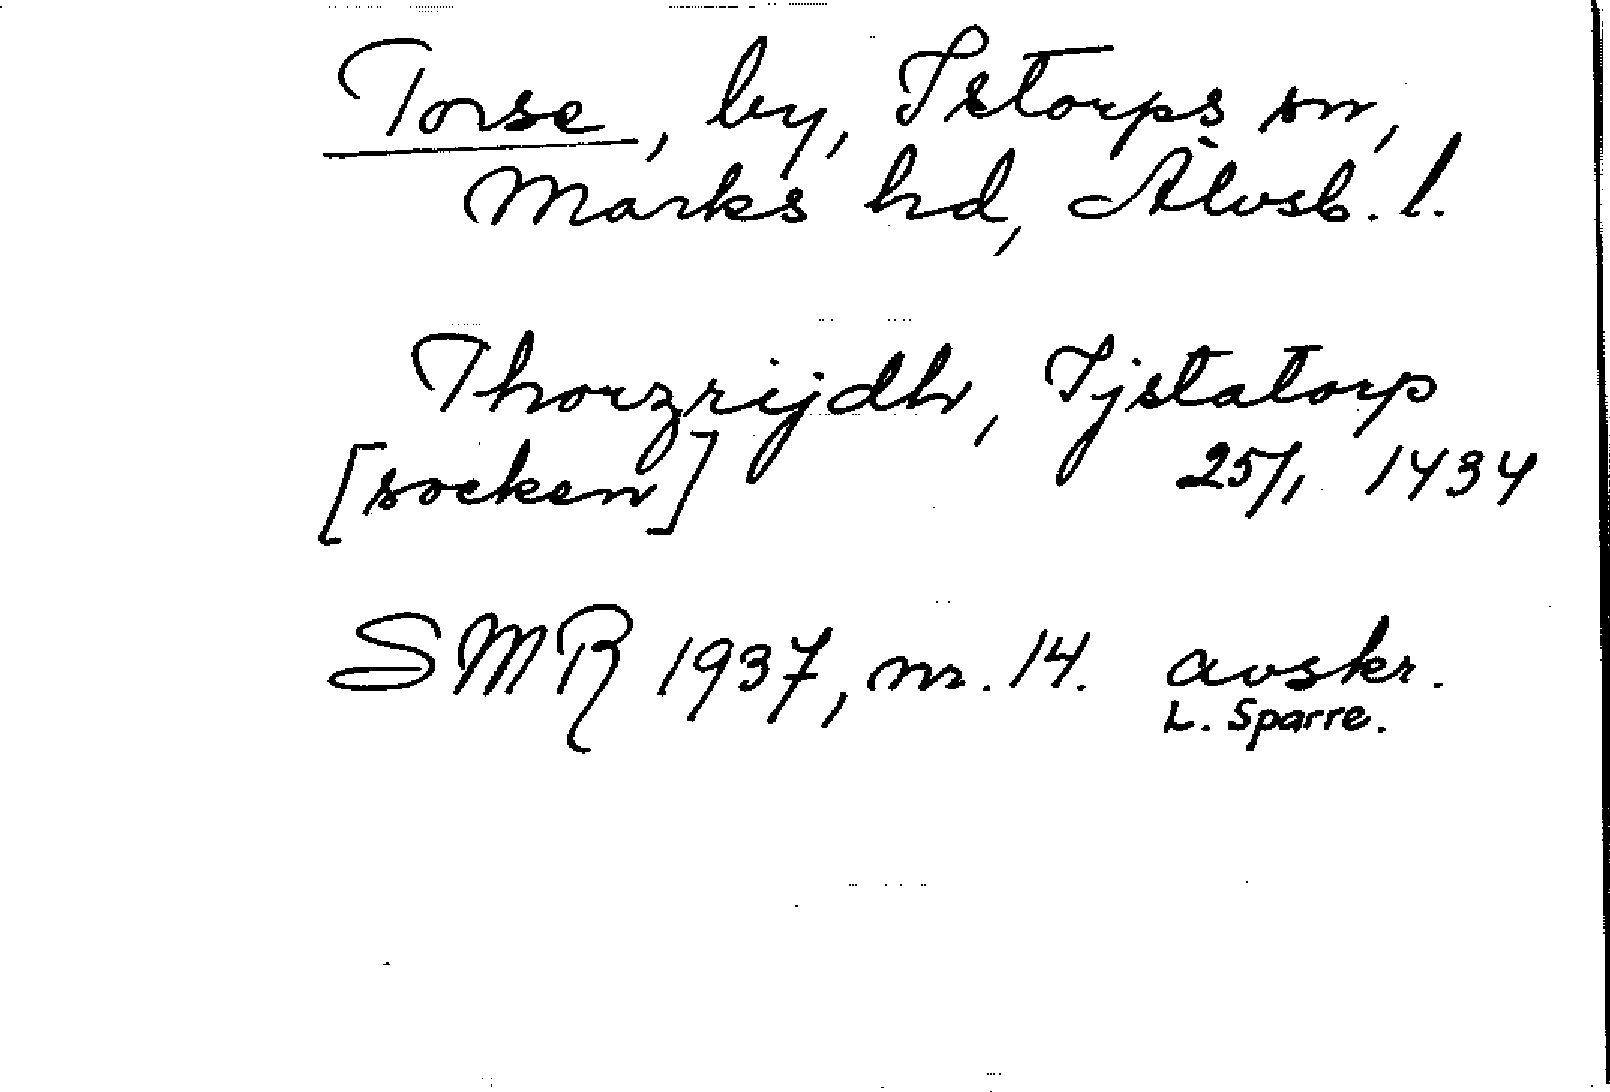 Torse, by, Istorps sn,
Marks hd, Älvsb. l.
Thorzrijdh, Ijstatorp
[socken] 25/1 1434
SMR 1937, nr. 14. avskr.
L. Sparre.